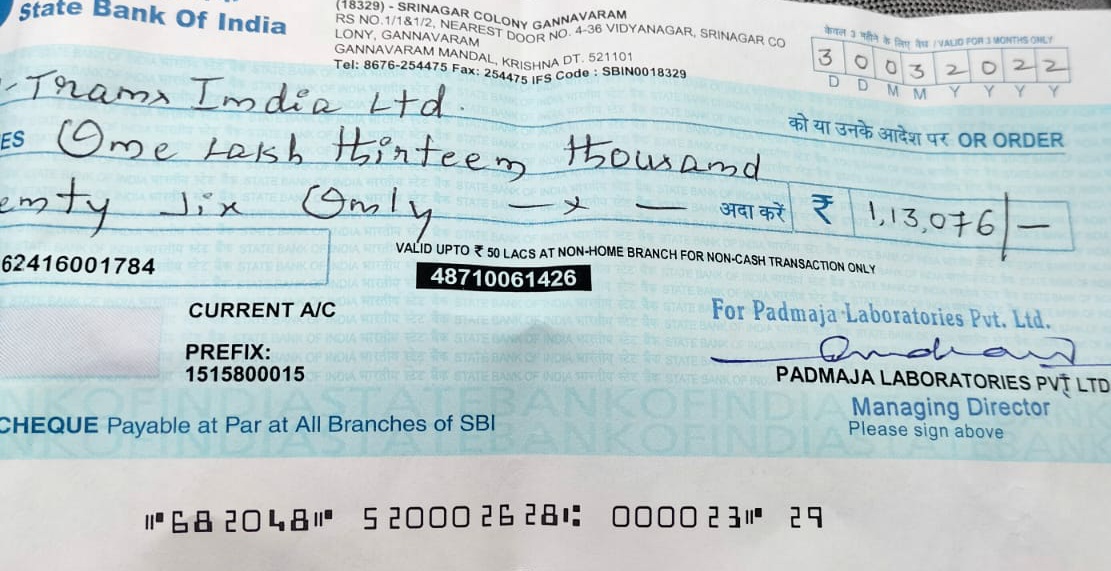 State Bank Of India
(18329) - SRINAGAR COLONY GANNAVARAM
RS NO.1/1&1/2, NEAREST DOOR NO. 4-36 VIDYANAGAR, SRINAGAR CO
LONY, GANNAVARAM
GANNAVARAM MANDAL, KRISHNA DT. 521101
Tel: 8676-254475 Fax: 254475 IFS Code : SBIN0018329
केवल 3 महीने के लिए वैध / VALID FOR 3 MONTHS ONLY
3 0 0 3 2 0 2 2
D D M M Y Y Y Y
Trans India Ltd.
को या उनके आदेश पर OR ORDER
ES One Lakh thirteen thousand
enty Six Only — x —
अदा करें ₹ 1,13,076/-
VALID UPTO ₹ 50 LACS AT NON-HOME BRANCH FOR NON-CASH TRANSACTION ONLY
62416001784
48710061426
CURRENT A/C
For Padmaja Laboratories Pvt. Ltd.
PREFIX:
1515800015
PADMAJA LABORATORIES PVT LTD
Managing Director
Please sign above
CHEQUE Payable at Par at All Branches of SBI
⑈682048⑈ 520002628⑆ 000023⑈ 29